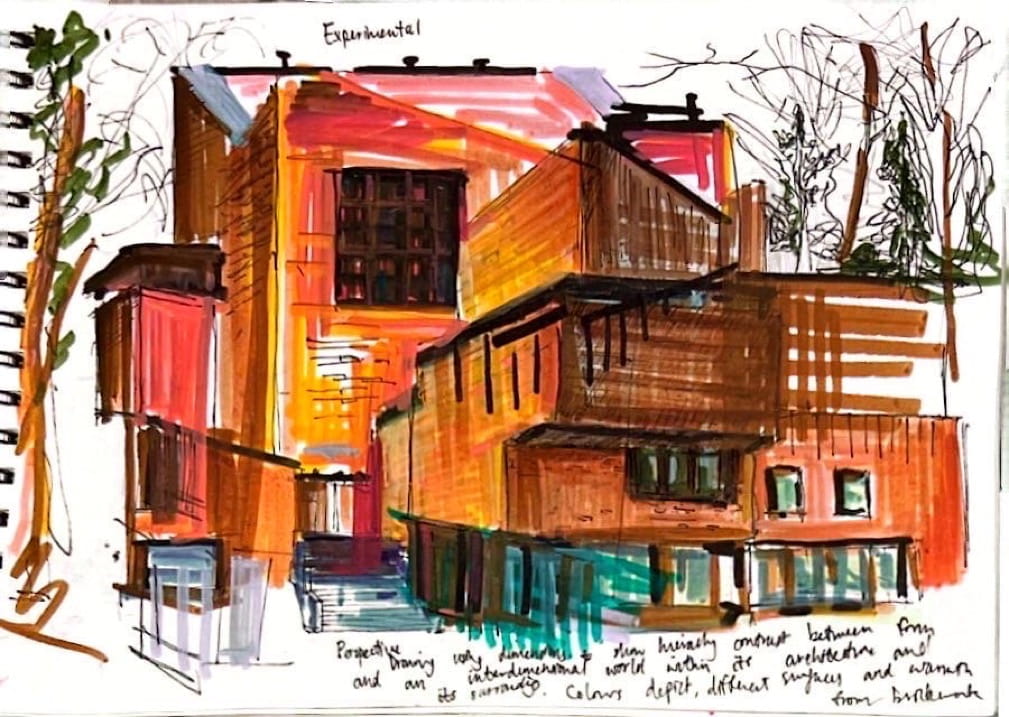 Experimental
Perspective
Drawing with dimensions to show hierachy contrast between form
and an interdimensional world within its architecture and
its surroundings. Colours depict, different surfaces and warmth
from brickwork